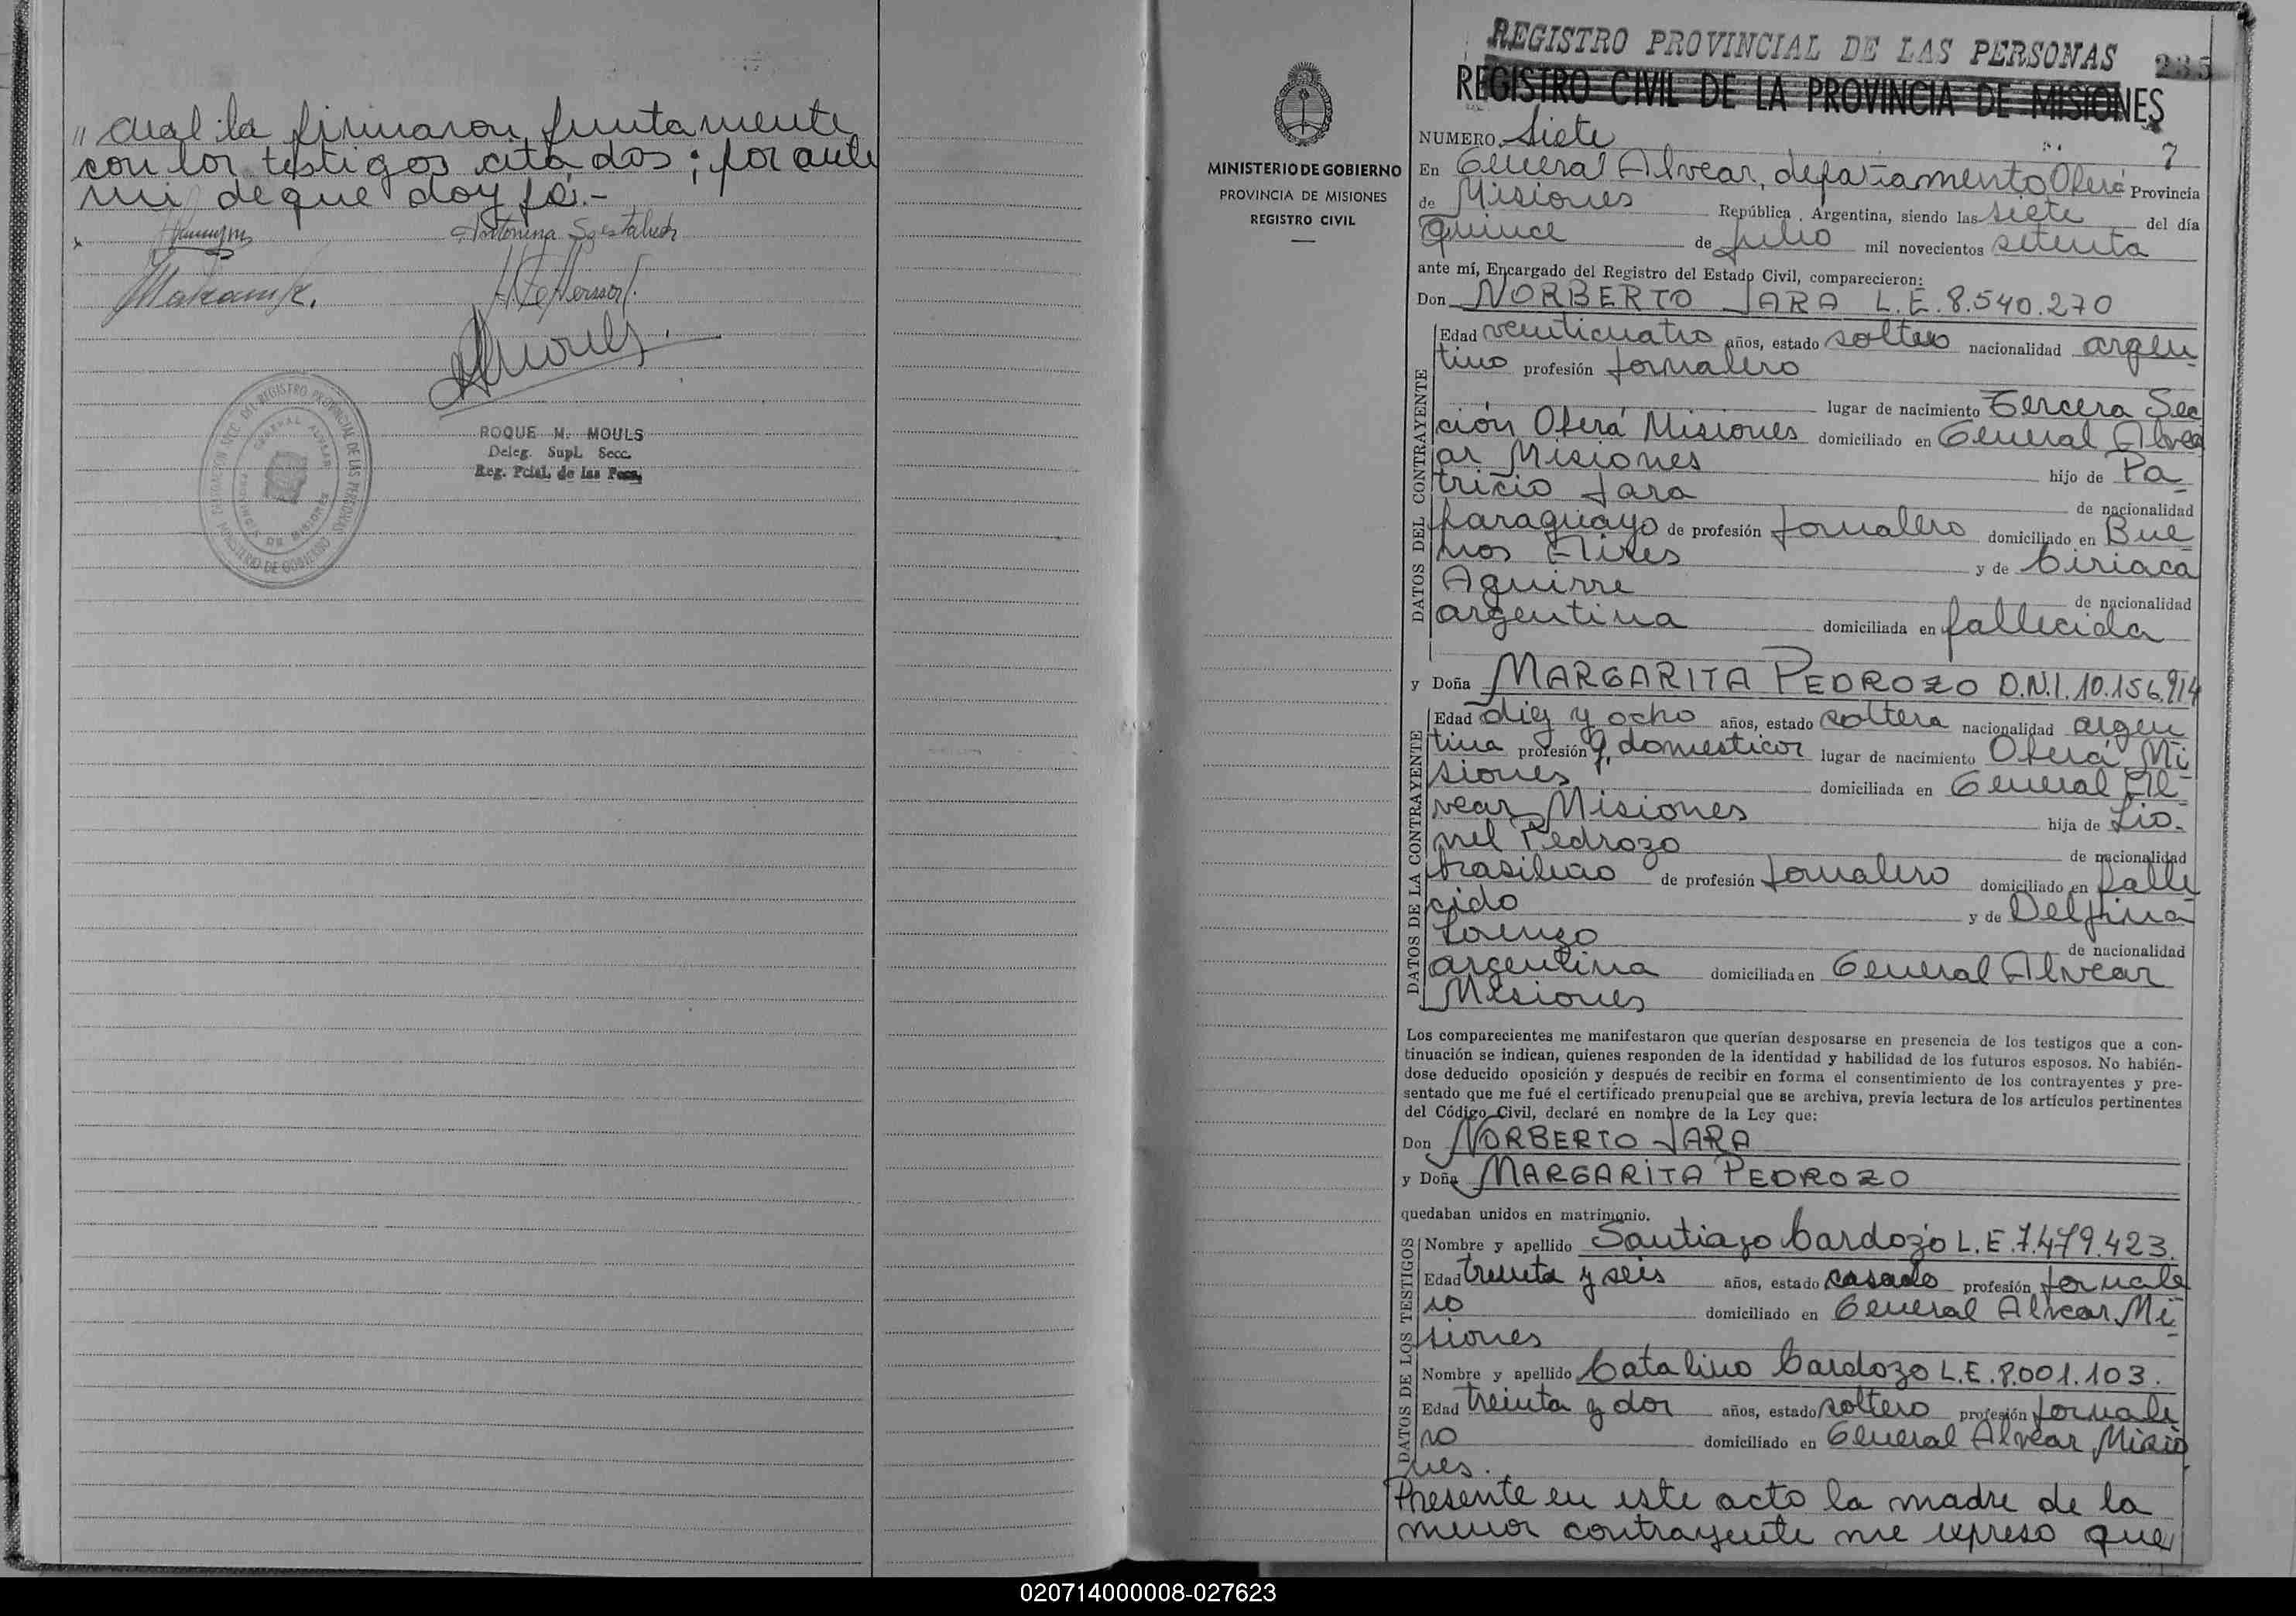 „ cual la firmaron juntamente
con los testigos citados; por ante
mi de que doy fé.-
Antonina
ROQUE M. MOULS
Deleg. Supl. Secc.
Reg. Pcial. de las Pers.
DEL REGISTRO PROVINCIAL DE LAS PERSONAS
GENERAL ALVEAR
PROVINCIA DE MISIONES
MINISTERIO DE GOBIERNO
MINISTERIO DE GOBIERNO
PROVINCIA DE MISIONES
REGISTRO CIVIL
REGISTRO PROVINCIAL DE LAS PERSONAS 235
REGISTRO CIVIL DE LA PROVINCIA DE MISIONES
NUMERO Siete 7
En General Alvear, departamento Oberá Provincia
de Misiones República Argentina, siendo las siete del día
quince de julio mil novecientos setenta
ante mí, Encargado del Registro del Estado Civil, comparecieron:
Don NORBERTO JARA L.E. 8.540.270
DATOS DEL CONTRAYENTE
Edad venticuatro años, estado soltero nacionalidad argen
tino profesión jornalero
lugar de nacimiento Tercera Sec
ción Oberá Misiones domiciliado en General Alve
ar Misiones hijo de Pa-
tricio Jara de nacionalidad
paraguayo de profesión jornalero domiciliado en Bue
nos Aires y de Ciriaca
Aguirre de nacionalidad
argentina domiciliada en fallecida
y Doña MARGARITA PEDROZO D.N.I. 10.156.914
DATOS DE LA CONTRAYENTE
Edad diez y ocho años, estado soltera nacionalidad argen
tina profesión q. domesticos lugar de nacimiento Oberá Mi
siones domiciliada en General Al-
vear Misiones hija de Lio-
nel Pedrozo de nacionalidad
brasilero de profesión jornalero domiciliado en falle
cido y de Delfina
Lorenzo de nacionalidad
argentina domiciliada en General Alvear
Misiones
Los comparecientes me manifestaron que querían desposarse en presencia de los testigos que a con-
tinuación se indican, quienes responden de la identidad y habilidad de los futuros esposos. No habién-
dose deducido oposición y después de recibir en forma el consentimiento de los contrayentes y pre-
sentado que me fué el certificado prenupcial que se archiva, previa lectura de los artículos pertinentes
del Código Civil, declaré en nombre de la Ley que:
Don NORBERTO JARA
y Doña MARGARITA PEDROZO
quedaban unidos en matrimonio.
DATOS DE LOS TESTIGOS
Nombre y apellido Santiago Cardozo L.E. 7.479.423.
Edad treinta y seis años, estado casado profesión jornale
ro domiciliado en General Alvear Mi-
siones
Nombre y apellido Catalino Cardozo L.E. 8.001.103.
Edad treinta y dos años, estado soltero profesión jornale
ro domiciliado en General Alvear Misio
nes.
Presente en este acto la madre de la
menor contrayente me expreso que
020714000008-027623